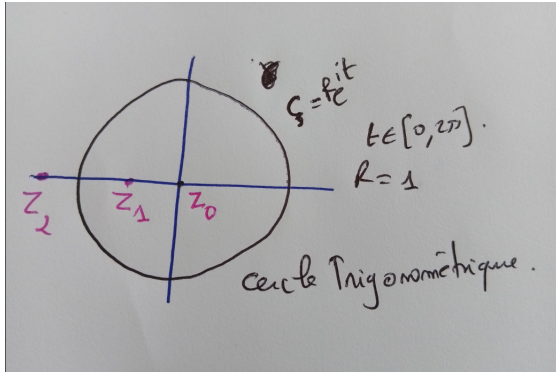 ζ = Re^{it}
t ∈ [0, 2π].
R = 1
Z_2 Z_1 Z_0
cercle Trigonométrique.